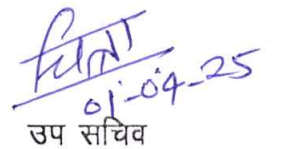 01-04-25
उप सचिव